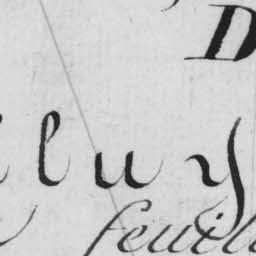 D
luy
feuill